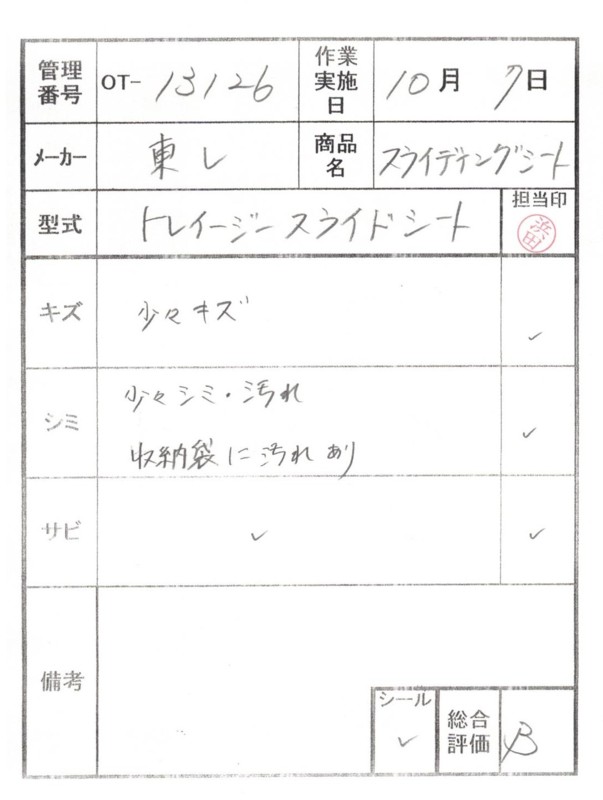 管理番号 OT- 13126 作業実施日 10月 7日
メーカー 東レ 商品名 スライディングシート
型式 トレイージースライドシート 担当印 浜田
キズ 少々キズ ✓
シミ 少々シミ・汚れ ✓
収納袋に汚れあり
サビ ✓ ✓
備考
シール ✓ 総合評価 B